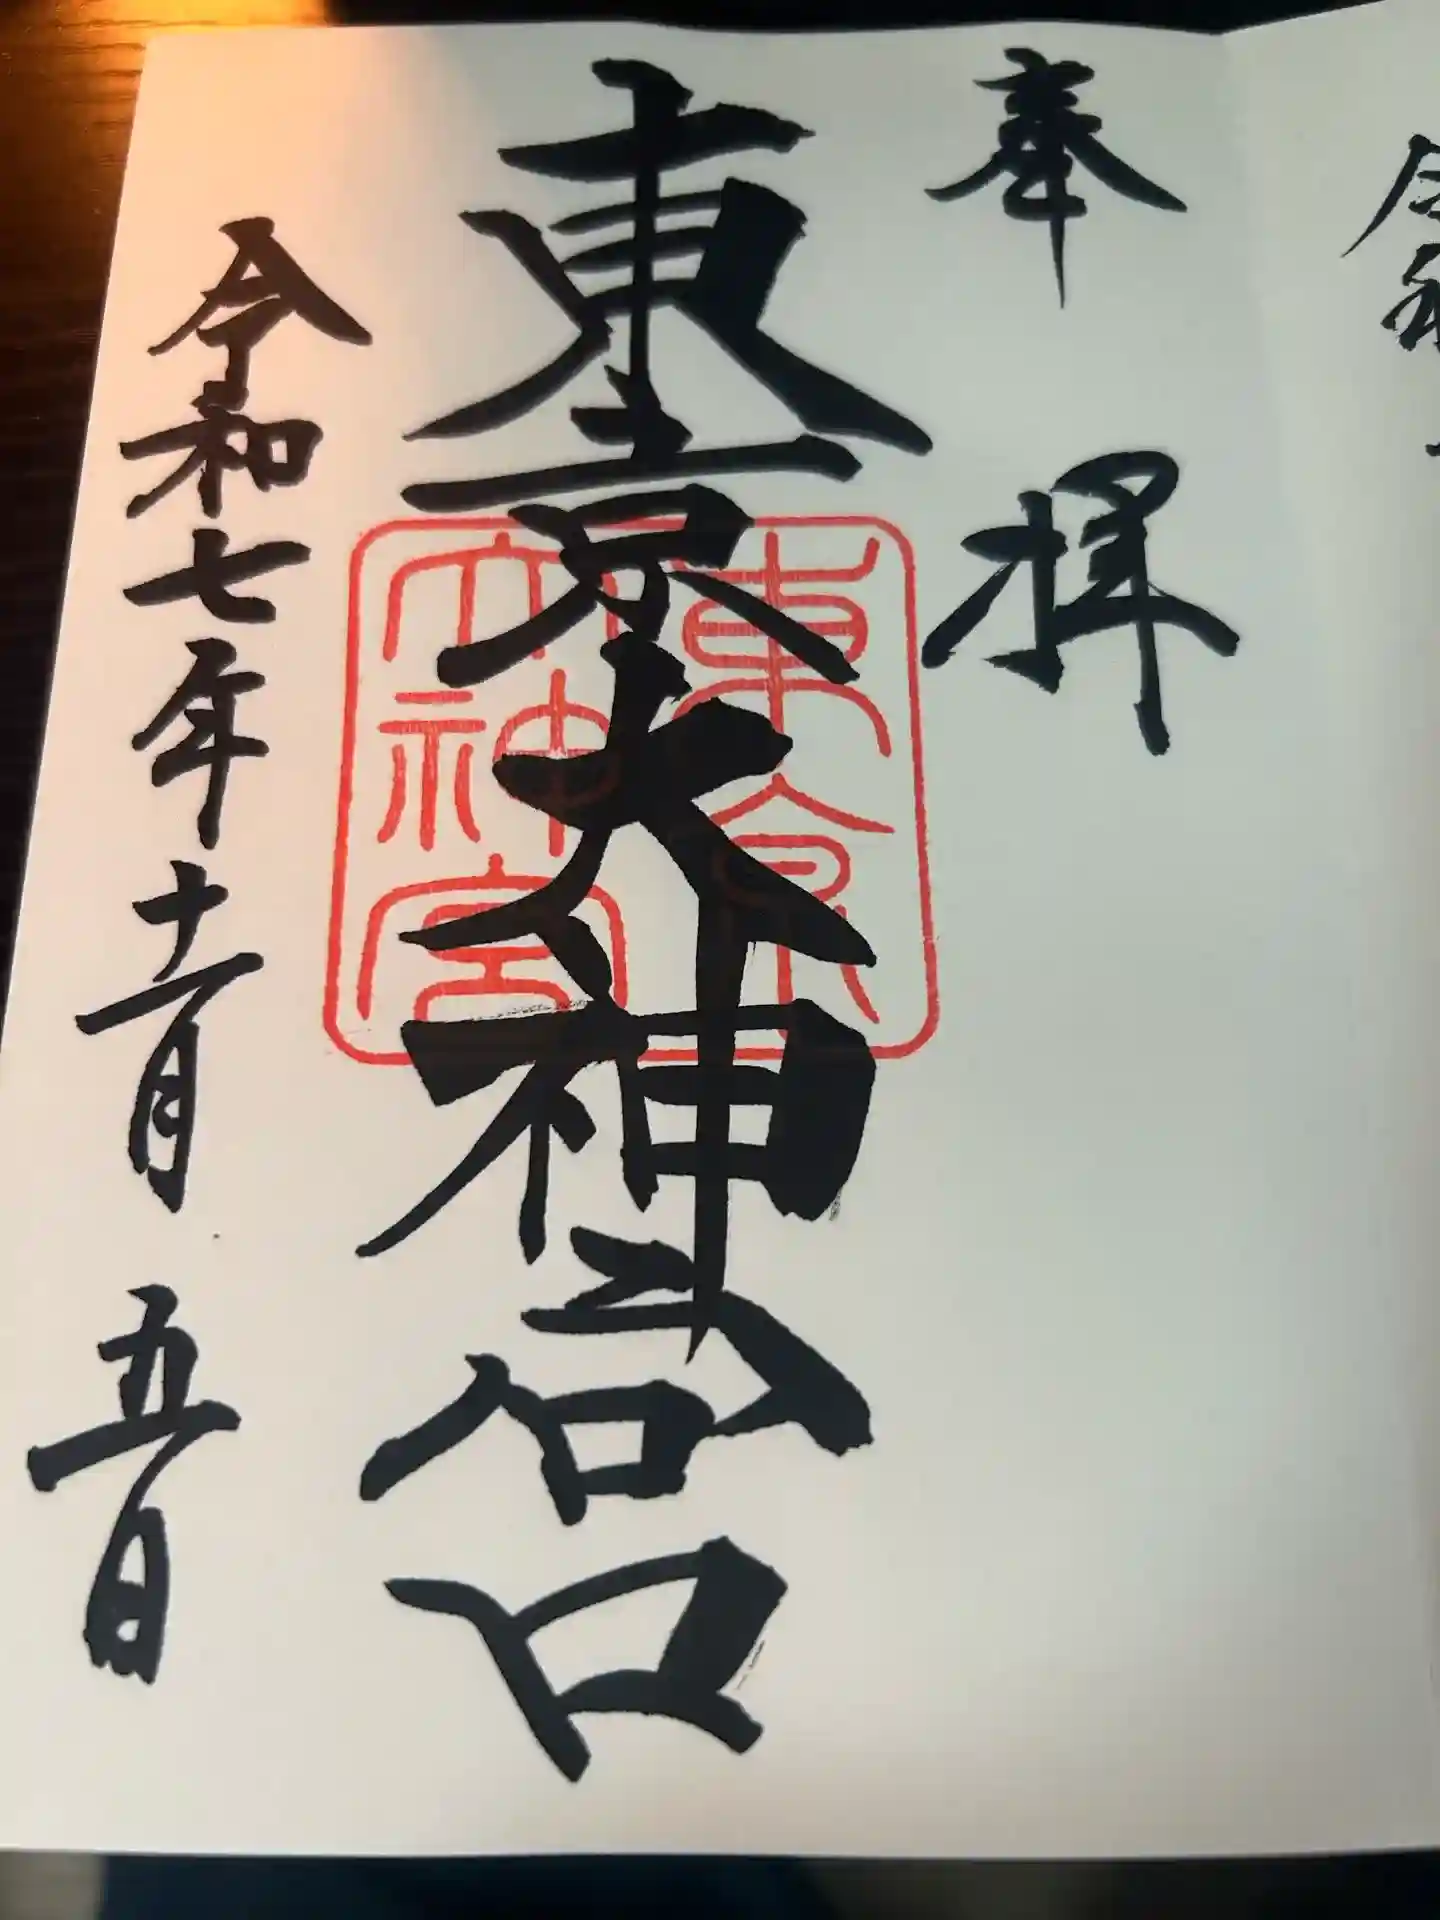 奉拝
東京大神宮
東京
大神宮
令和七年十一月五日